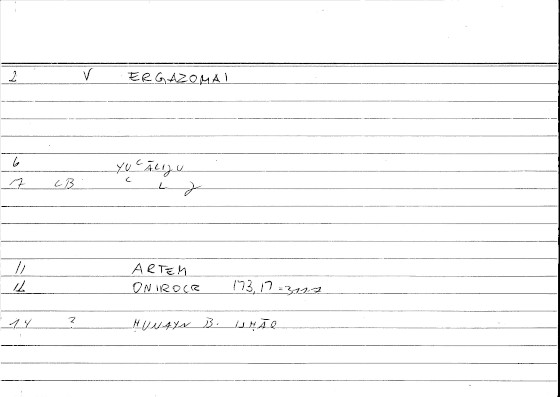 2 V ERGAZOMAI
6 YUʿĀLIJU
7 CB ʿ L J
11 ARTEM
12 ONIROCR 173,17
14 ? ḤUNAYN B. ISḤĀQ